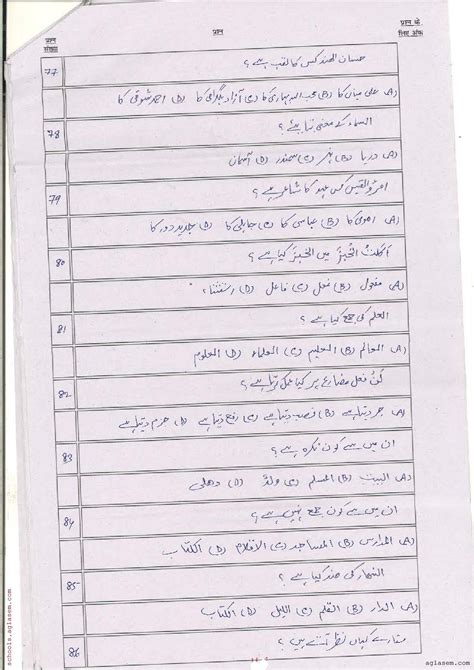 प्रश्न संख्या
प्रश्न
प्रश्न के लिए अंक
77 حسان الہند کس کا لقب ہے؟
(A) علی میاں کا (B) محب اللہ بہاری کا (C) آزاد بلگرامی کا (D) احمد شوقی کا
78 السماء کے معنی کیا ہے؟
(A) دریا (B) نہر (C) سمندر (D) آسمان
79 امرؤ القیس کس عہد کا شاعر ہے؟
(A) اموی کا (B) عباسی کا (C) جاہلی کا (D) جدید دور کا
80 أکلتُ الخبزَ میں الخبزَ کیا ہے؟
(A) مفعول (B) فعل (C) فاعل (D) استثناء
81 العلم کی جمع کیا ہے؟
(A) العالم (B) التعلیم (C) العلماء (D) العلوم
82 لَنْ فعل مضارع پر کیا عمل کرتا ہے؟
(A) جر دیتا ہے (B) نصب دیتا ہے (C) رفع دیتا ہے (D) جزم دیتا ہے
83 ان میں سے کون نکرہ ہے؟
(A) البیت (B) المسلم (C) ولدٌ (D) دھلی
84 ان میں سے کون جمع نہیں ہے؟
(A) المدارس (B) المساجد (C) الاقلام (D) الکتاب
85 النھار کی ضد کیا ہے؟
(A) الدار (B) القلم (C) اللیل (D) الکتاب
86 کہاں نظر آتے ہیں؟
schools.aglasem.com
aglasem.com